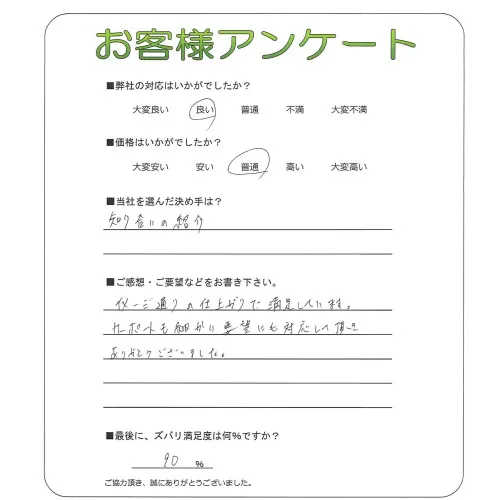 お客様アンケート
■弊社の対応はいかがでしたか？
大変良い 良い 普通 不満 大変不満
■価格はいかがでしたか？
大変安い 安い 普通 高い 大変高い
■当社を選んだ決め手は？
知り合いの紹介
■ご感想・ご要望などをお書き下さい。
イメージ通りの仕上がりで満足しています。
カーポートも細かい要望にも対応して頂き
ありがとうございました。
■最後に、ズバリ満足度は何％ですか？
90 ％
ご協力頂き、誠にありがとうございました。